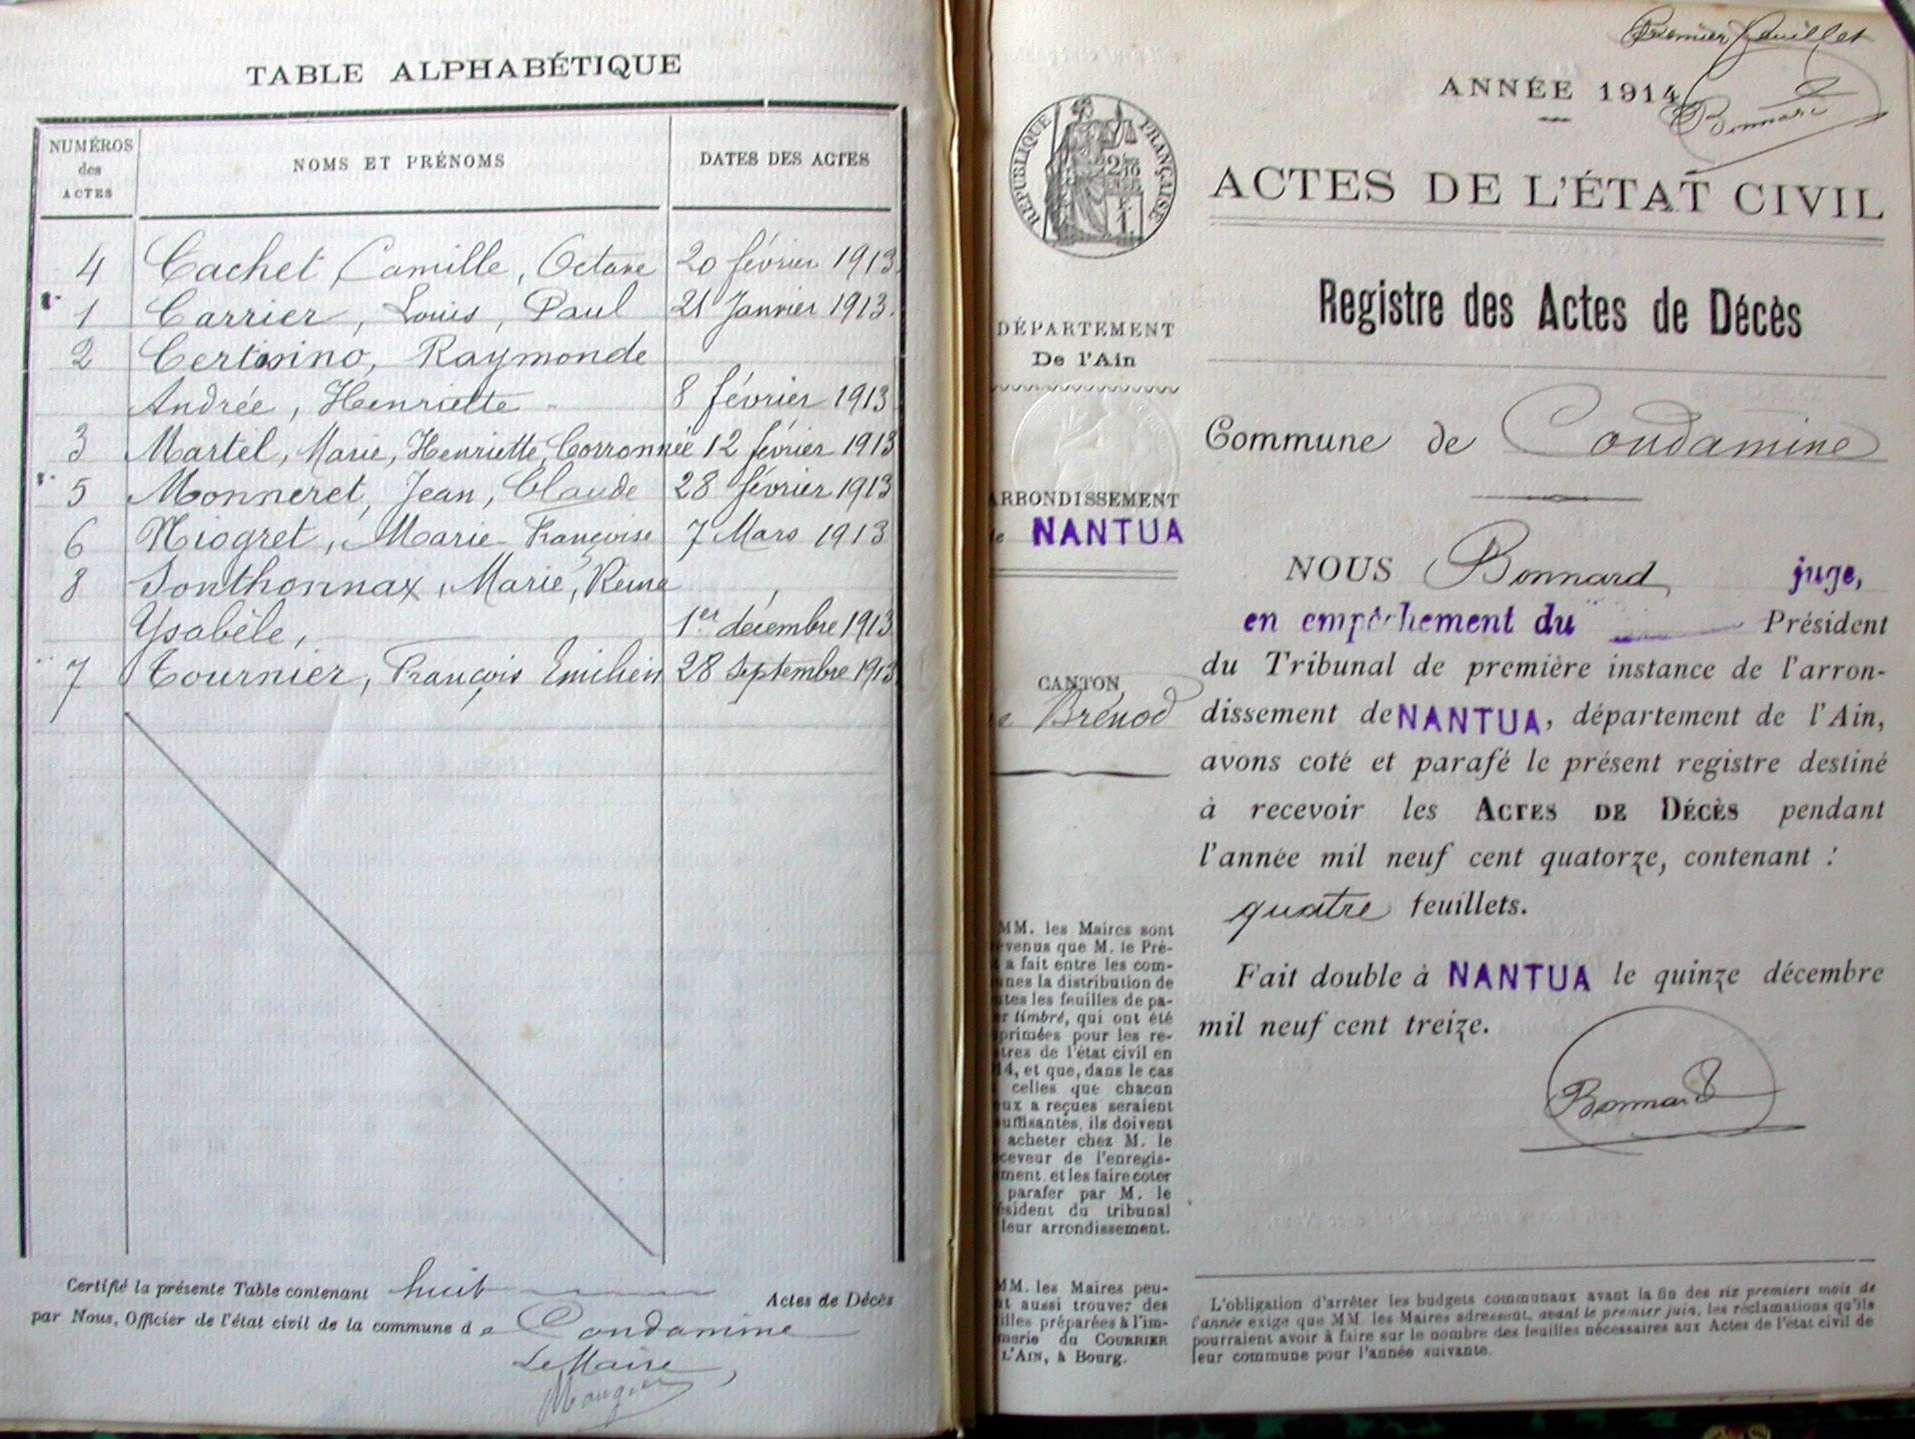 TABLE ALPHABÉTIQUE
NUMÉROS des ACTES
NOMS ET PRÉNOMS
DATES DES ACTES
4 Cachet Camille, Octave 20 février 1913
1 Carrier, Louis, Paul 21 Janvier 1913.
2 Certosino, Raymonde
Andrée, Henriette 8 février 1913
3 Martel, Marie, Henriette, Corronnée 12 février 1913
5 Monneret, Jean, Claude 28 février 1913
6 Niogret, Marie Françoise 7 Mars 1913
8 Sonthonnax, Marie, Reine
Ysabèle, 1er décembre 1913
7 Tournier, François Emilien 28 Septembre 1913
Certifié la présente Table contenant huit Actes de Décès
par Nous, Officier de l'état civil de la commune de Condamine
Le Maire,
Premier feuillet
ANNÉE 1914
Bonnard
RÉPUBLIQUE FRANÇAISE
ACTES DE L'ÉTAT CIVIL
Registre des Actes de Décès
DÉPARTEMENT
De l'Ain
Commune de Condamine
ARRONDISSEMENT
de NANTUA
CANTON
e Brénod
NOUS Bonnard juge,
en empêchement du Président
du Tribunal de première instance de l'arron-
dissement de NANTUA, département de l'Ain,
avons coté et parafé le présent registre destiné
à recevoir les ACTES DE DÉCÈS pendant
l'année mil neuf cent quatorze, contenant :
quatre feuillets.
Fait double à NANTUA le quinze décembre
mil neuf cent treize.
Bonnard
MM. les Maires sont
venus que M. le Pré-
a fait entre les com-
nes la distribution de
tes les feuilles de pa-
r timbré, qui ont été
primées pour les re-
tres de l'état civil en
14, et que, dans le cas
celles que chacun
ux a reçues seraient
uffisantes, ils doivent
acheter chez M. le
ceveur de l'enregis-
ment, et les faire coter
parafer par M. le
ésident du tribunal
leur arrondissement.
MM. les Maires peu-
nt aussi trouver des
illes préparées à l'im-
merie du COURRIER
L'AIN, à Bourg.
L'obligation d'arrêter les budgets communaux avant la fin des six premiers mois de
l'année exige que MM. les Maires adressent, avant le premier juin, les réclamations qu'ils
pourraient avoir à faire sur le nombre des feuilles nécessaires aux Actes de l'état civil de
leur commune pour l'année suivante.